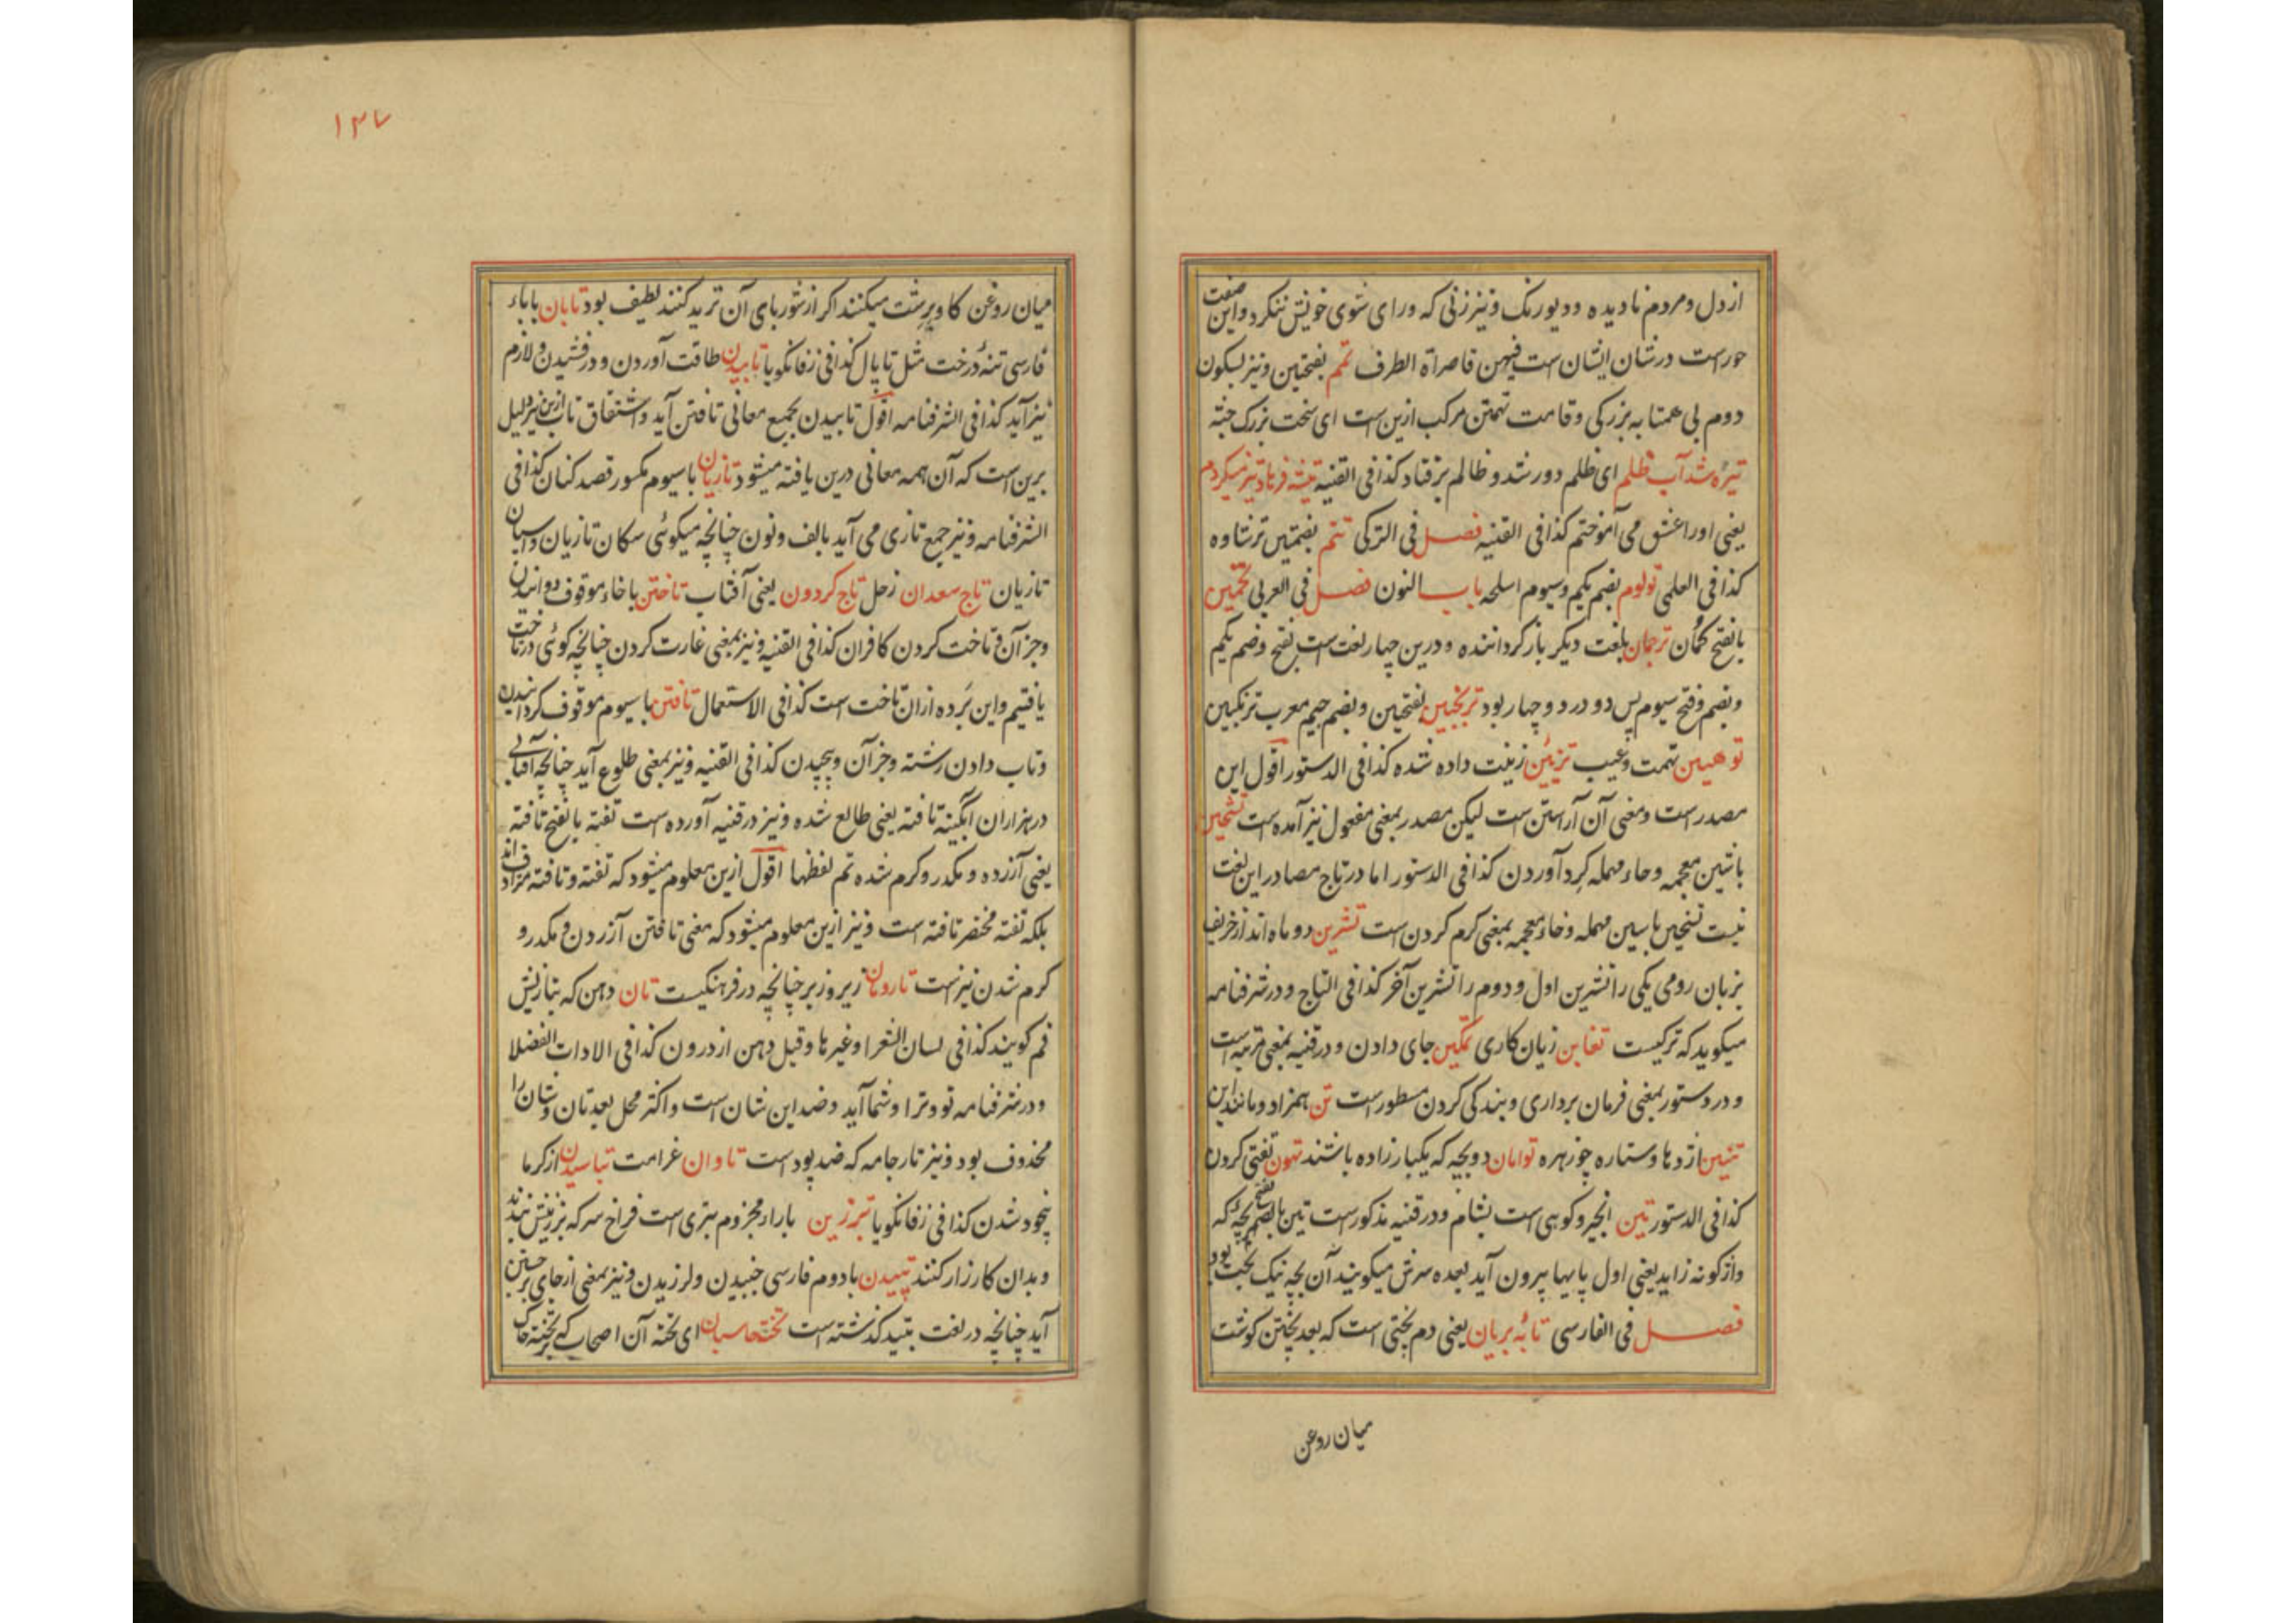 از دل و مردم نادیده و دیورنک و نیز زنی که ورای شوی خویش ننکرد و این صفت
حورست در شان ایشان است فیهن قاصرات الطرف تهم بفتحتین و نیز بسکون
دوم بی همتا به بزرکی و قامت تهمتن مرکب ازین است ای سخت بزرک جثه
تیره شد آب ظلم ای ظلم دور شد و ظالم برفتاد کذا فی القنیه تیشه فرهاد تیز میکردم
یعنی او را عشق می آموختم کذا فی القنیه فصل فی الترکی تتم بضمتین ترشاوه
کذا فی العلمی تولوم بضم یکم و سیوم اسلحه باب النون فصل فی العربی تخمین
بالفتح کمان ترجمان بلغت دیکر باز کرداننده و درین چهار لغت است بفتح و ضم یکم
و بضم و فتح سیوم پس دو در دو چهار بود ترنجبین بفتحین و بضم جیم معرب ترنکبین
توهین تهمت و عیب تزیین زینت داده شده کذا فی الدستور اقول این
مصدر است و معنی آن آراستن است لیکن مصدر بمعنی مفعول نیز آمده است تشحین
باشین معجمه و حاء مهمله کرد آوردن کذا فی الدستور اما در تاج مصادر این لغت
نیست تسخین با سین مهمله و خاء معجمه بمعنی کرم کردن است تشرین دو ماه اند از خریف
بزبان رومی یکی را تشرین اول و دوم را تشرین آخر کذا فی التاج و در شرفنامه
میکوید که ترکیست تغابن زیان کاری تمکین جای دادن و در قنیه بمعنی مرتبه است
و در دستور بمعنی فرمان برداری و بندکی کردن مسطور است تن همزاد و مانند این
تنین اژدها و ستاره جوزهره توامان دو بچه که یکبار زاده باشند تهون تغتی کردن
کذا فی الدستور تین انجیر و کوهی است بشام و در قنیه مذکورست تین بالضم بچهٔ که
واژکونه زاید یعنی اول پایها بیرون آید بعده سرش میکویند آن بچه نیک بخت بود
فصل فی الفارسی تابه بریان یعنی دم پختی است که بعد پختن کوشت
میان روغن
۱۲۷
میان روغن کاو برشت میکنند اکر از شوربای آن ترید کنند لطیف بود تاپان با باء
فارسی تنهٔ درخت مثل تاپال کذا فی زفانکویا تابیدن طاقت آوردن و درفشیدن و لازم
نیز آید کذا فی الشرفنامه اقول تابیدن بجمیع معانی تافتن آید و اشتقاق تاب ازین نیز دلیل
برین است که آن همه معانی درین یافته میشود تازیان با سیوم مکسور قصد کنان کذا فی
الشرفنامه و نیز جمع تازی می آید بالف و نون چنانچه میکوئی سکان تازیان و اسپان
تازیان تاج سعدان زحل تاج کردون یعنی آفتاب تاختن با خاء موقوف دوانیدن
و جز آن و تاخت کردن کافران کذا فی القنیه و نیز بمعنی غارت کردن چنانچه کوئی در تاخت
یافتیم و این برده ازان تاخت است کذا فی الاستعمال تافتن با سیوم موقوف کردانیدن
و تاب دادن رشته و جز آن و پیچیدن کذا فی القنیه و نیز بمعنی طلوع آید چنانچه آفتابی
در هزاران آبکینه تافته یعنی طالع شده و نیز در قنیه آورده است تفته بالفتح تافته
یعنی آزرده و مکدر و کرم شده تم لفظها اقول ازین معلوم میشود که تفته و تافته مترادف اند
بلکه تفته مختصر تافته است و نیز ازین معلوم میشود که معنی تافتن آزردن و مکدر و
کرم شدن نیز است تارومان زیر و زبر چنانچه در فرهنکیست تان دهن که بتازیش
فم کویند کذا فی لسان الشعرا و غیرها و قیل دهن از درون کذا فی الادات الفضلا
و در شرفنامه تو و ترا و شما آید و ضد این شان است و اکثر محل بعد تان و شان را
محذوف بود و نیز تار جامه که ضد پود است تاوان غرامت تباسیدن از کرما
بیخود شدن کذا فی زفانکویا تبرزین باراء مجزوم تبری است فراخ سر که بزرینش بندند
و بدان کارزار کنند تپیدن با دوم فارسی جنبیدن و لرزیدن و نیز بمعنی از جای برجستن
آید چنانچه در لغت تپید کذشته است تخته حاسبان ای تخته آن اصحاب که بر تخته خاک